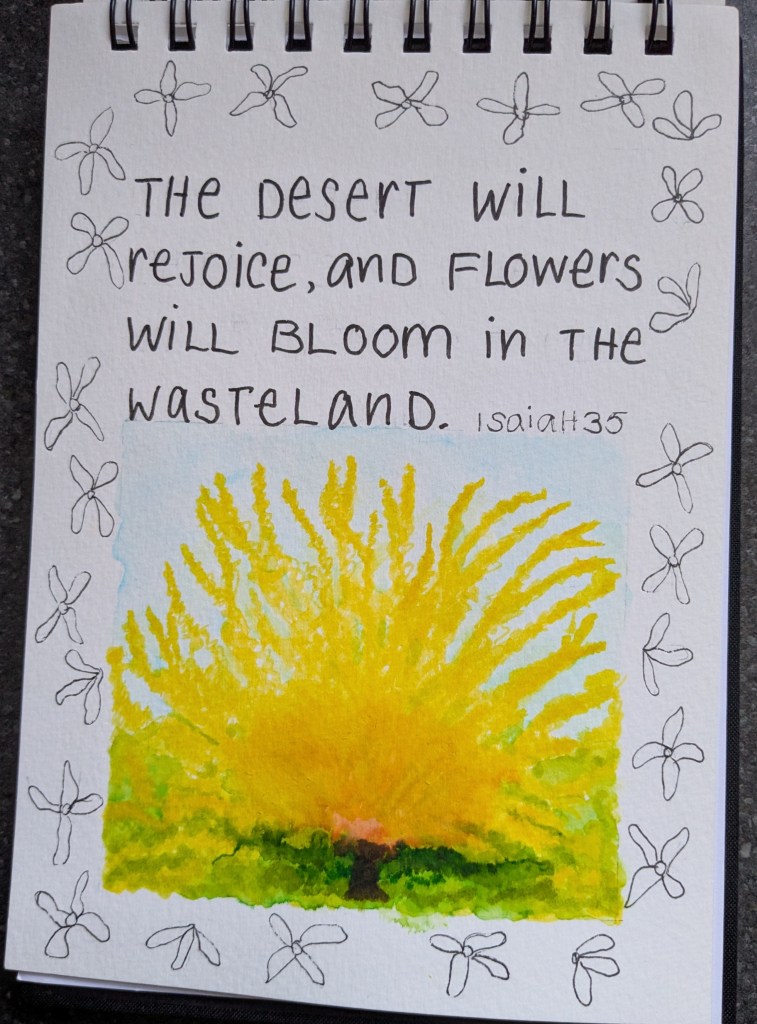 THe DeserT WiLL
reJoice, anD FLoWers
WiLL BLoom in THe
WasTeLanD. IsaiaH 35